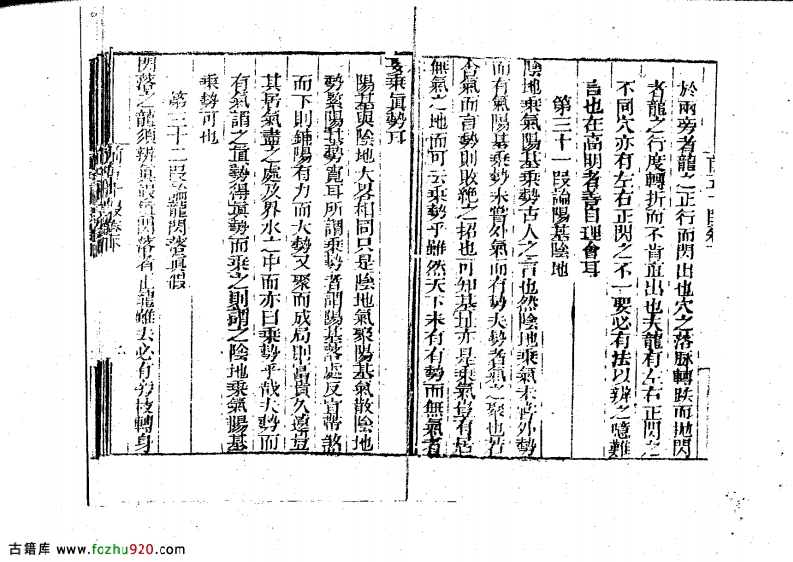 於兩旁者龍之正行而閃出也穴之落脉轉跌而拋閃
者龍之行度轉折而不肯直出也夫龍有左右正閃之
不同穴亦有左右正閃之不一要必有法以辨之噫難
言也在高明者善自理會耳
第三十一段論陽基陰地
陰地乘氣陽基乘勢古人之言也然陰地乘氣未嘗外勢
而有氣陽基乘勢未嘗外氣而有勢夫勢者氣之聚也若
舍氣而言勢則敗絶之招也可知基且亦是乘氣豈有居
無氣之地而可云乘勢乎雖然天下未有有勢而無氣者
要乘眞勢耳
陽基與陰地大以相同只是陰地氣聚陽基氣散陰地
勢緊陽基勢寬耳所謂乘勢者謂陽基落處反官帶煞
而下則鋪陽有力而大勢又聚而成局則富貴久遠豈
其居氣盡之處及界水之中而亦曰乘勢乎哉大勢而
有氣謂之眞勢得眞勢而乘之則謂之陰地乘氣陽基
乘勢可也
第三十二段論龍閃落眞假
閃落之龍須辨眞假眞閃落者正龍雖去必有分枝轉身
古籍库 www.fozhu920.com